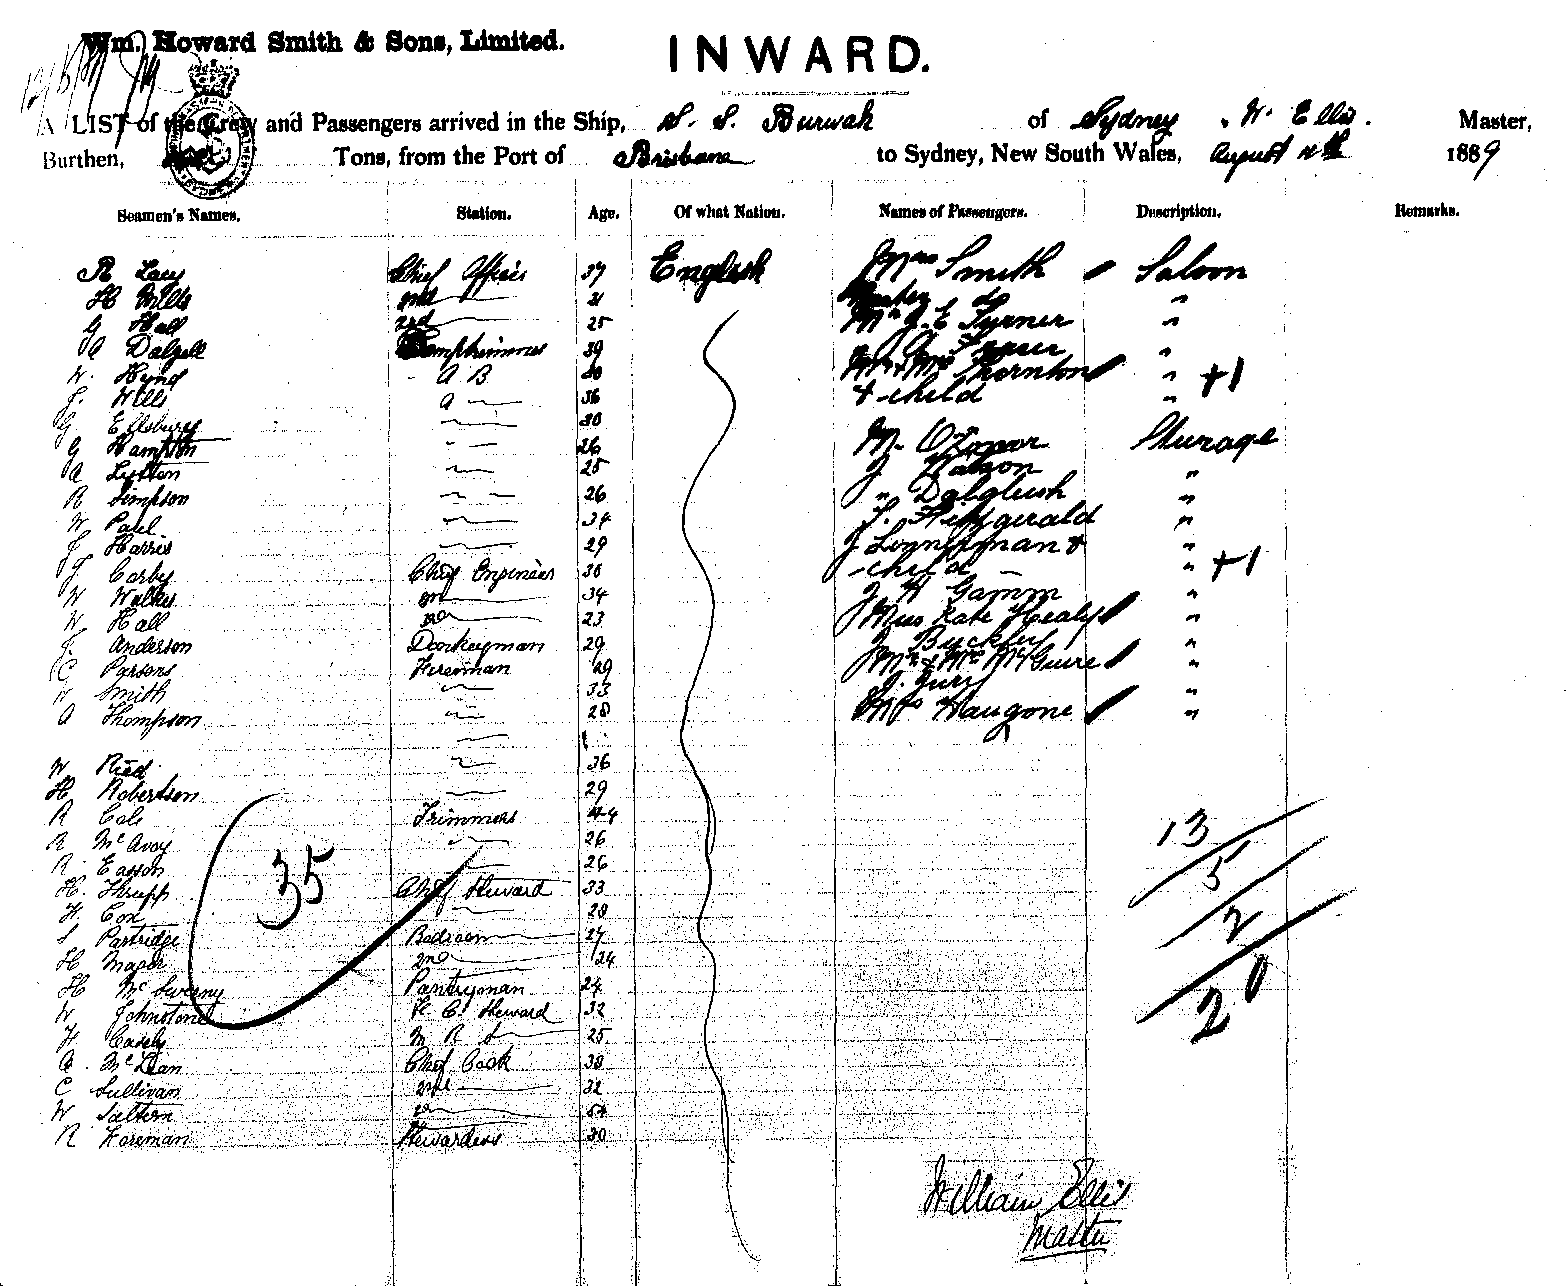 Wm. Howard Smith & Sons, Limited.
INWARD.
A LIST of the Crew and Passengers arrived in the Ship, S. S. Burwah of Sydney, W. Ellis. Master,
Burthen, Tons, from the Port of Brisbane to Sydney, New South Wales, August 1889
Seamen's Names. Station. Age. Of what Nation. Names of Passengers. Description. Remarks.
R Lacy Chief Officer 37 English Mrs Smith Saloon
H Mills 2nd — 21 Master do "
G Hall 25 Mr J. E Turner "
A Dalzell 39 Fraser "
W. Hynd A B Mr & Mrs Thornton " +1
J. Wells A — 36 & child "
G Ellsbury — 30
G Hampton — 26 M. Sturage
A — 25 J Watson "
R Simpson — 26 " Dalgleish "
W Paul — 34 J. Fitzgerald "
J Harris — 29 &
J Corby Chief Engineer 30 child — " +1
W Walker — 34 J H Gamm "
W Hall — 23 Miss Kate Healy "
J. Anderson Donkeyman 29 J Buckley "
C Parsons Fireman 29 Mr & Mrs McGuire "
W Smith — 33 J. Jury "
A Thompson — 28 Mrs Haugone "
W Ried — 36
H Robertson — 29
R Cole Trimmers 44
R McAvoy " 26 13
R. Easson 26 5
H. Thrupp Chief Steward 33
H. Cox — 28 2
S Partridge Bedroom — 27
H Major 2nd — 24
H McSweeny Pantryman 24 20
W Johnstone F. C. Steward 32
H Casely M R S — 25
A. McLean Chief Cook 38
C Sullivan 2nd — 32
W Saltern
R Foreman Stewardess 30
35
William Ellis
Master